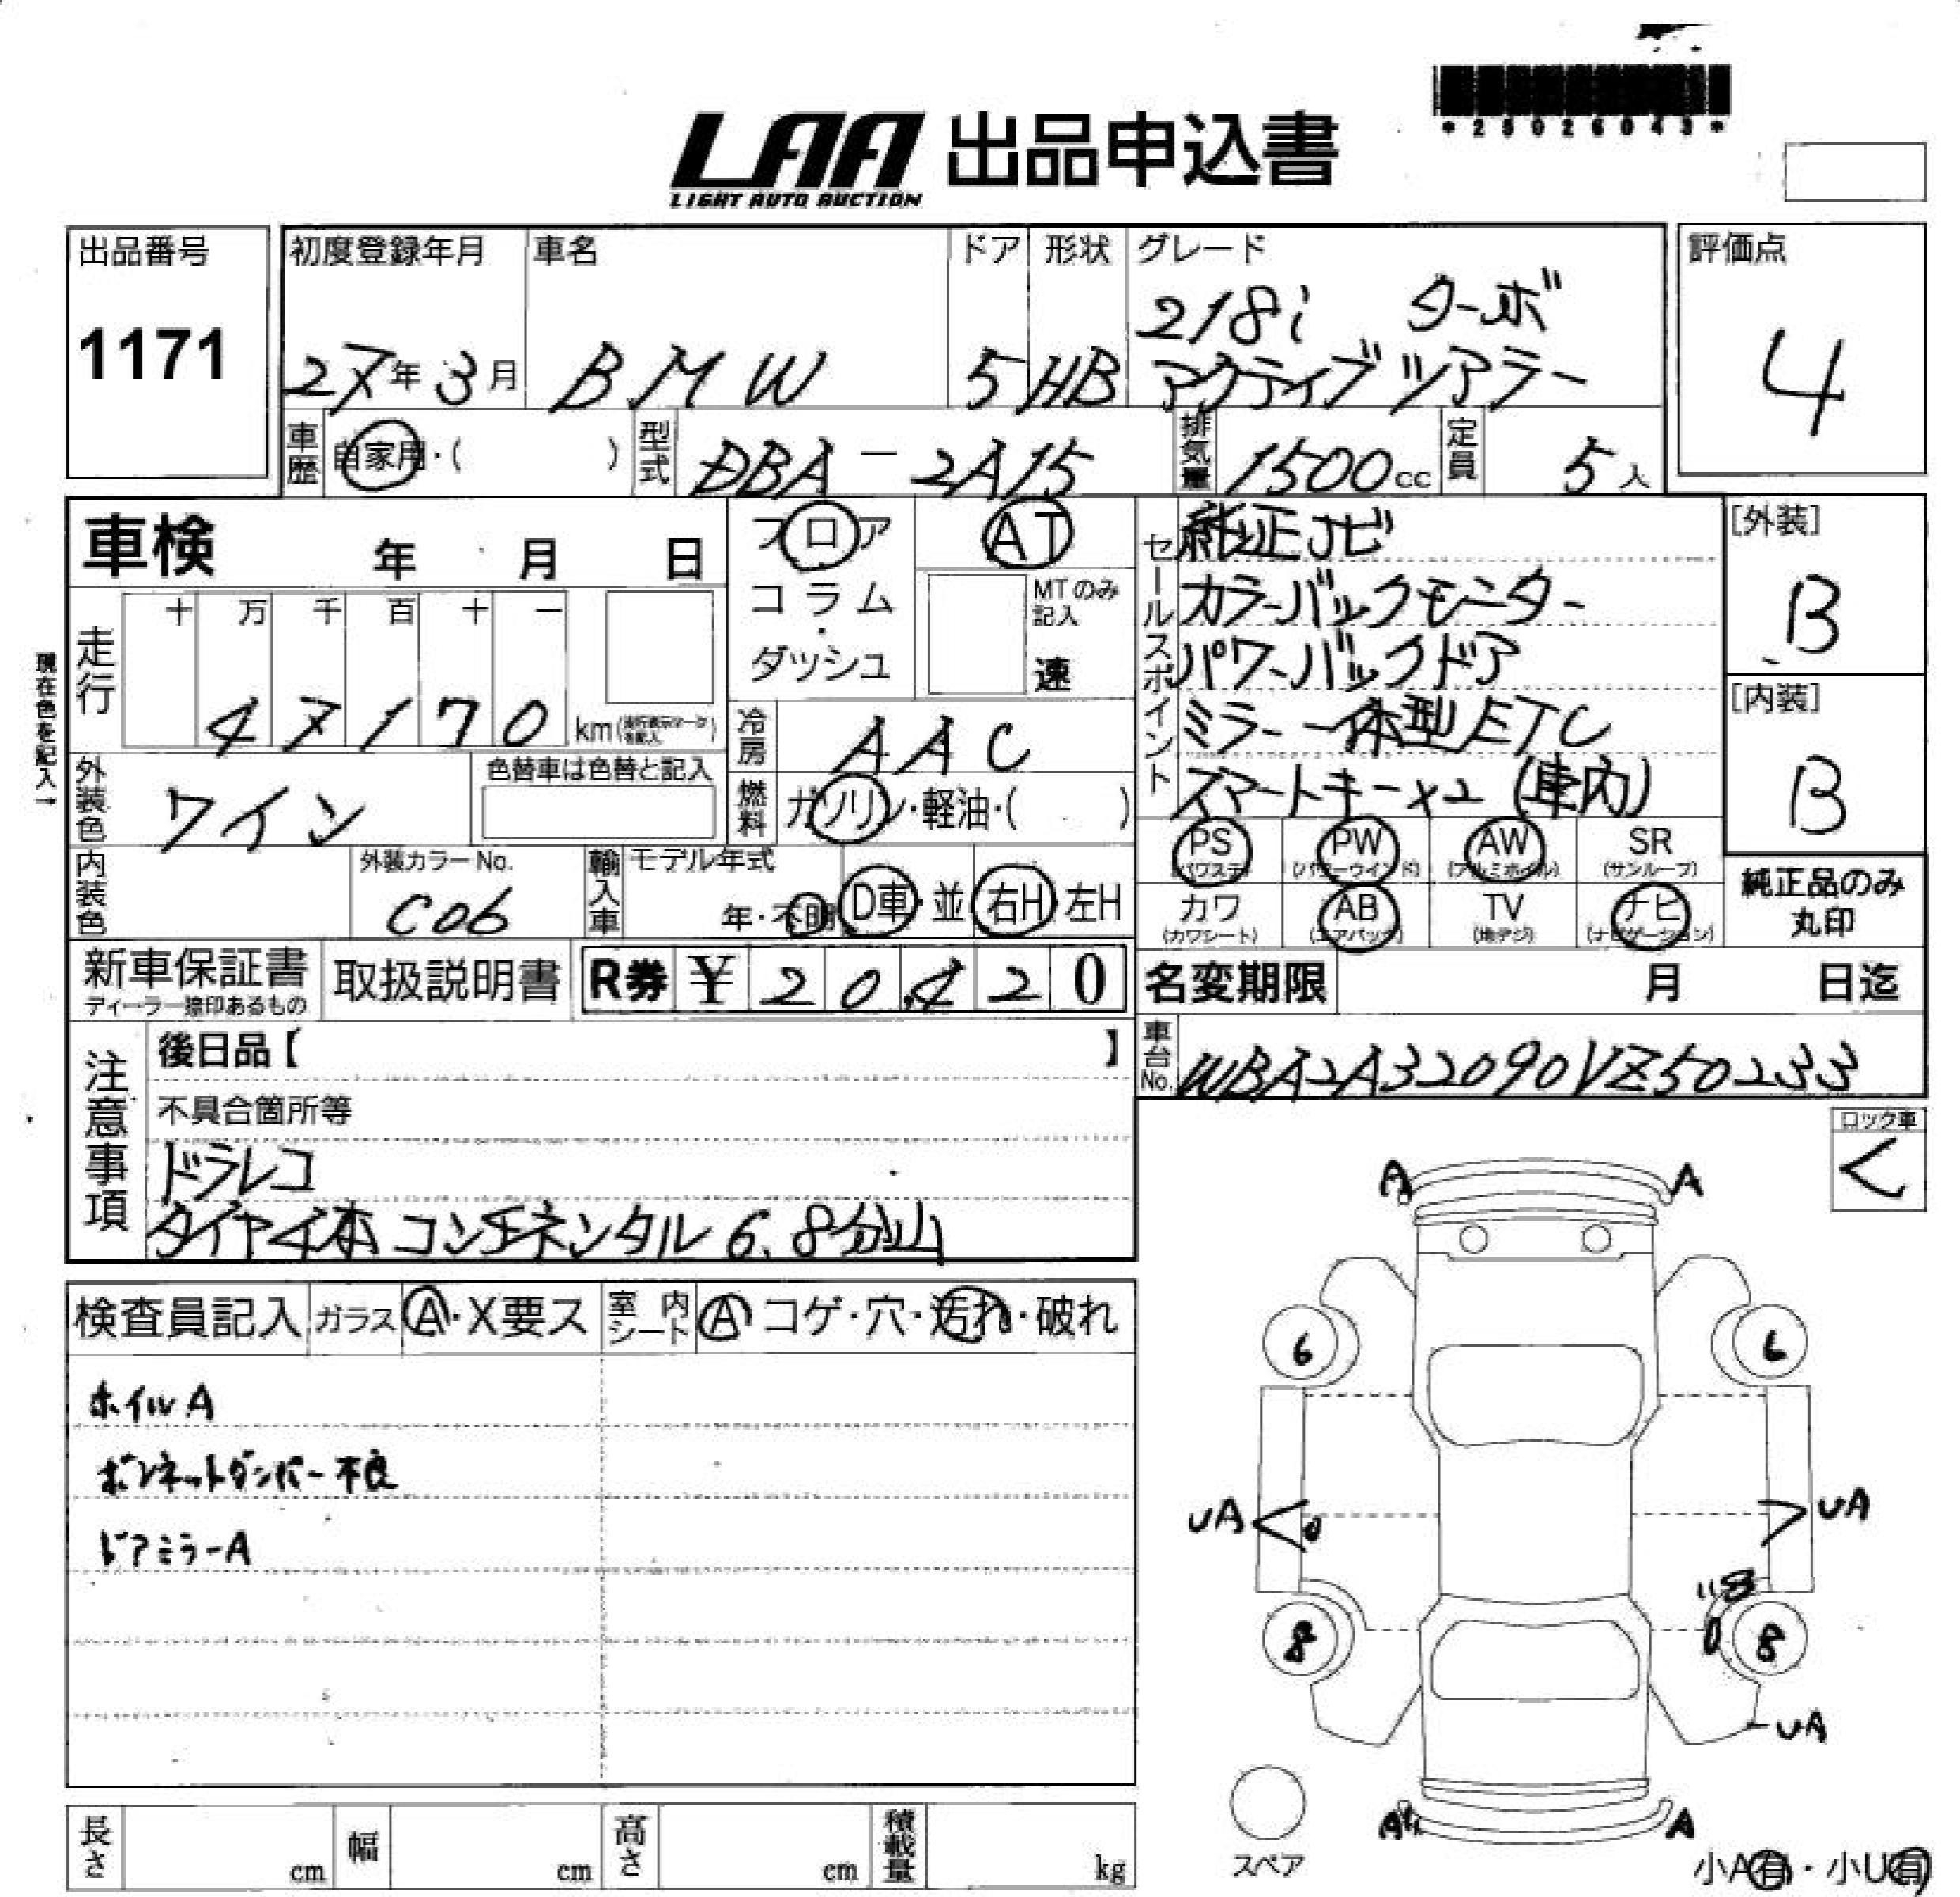 *25026043*
LAA 出品申込書
LIGHT AUTO AUCTION
出品番号
1171
初度登録年月
27年3月
車名
BMW
ドア
5
形状
HB
グレード
218i ターボ
アクティブツアラー
評価点
4
車歴 自家用・( )
型式 DBA-2A15
排気量 1500cc
定員 5人
車検 年 月 日
フロア
コラム
・
ダッシュ
AT
MTのみ
記入
速
セールスポイント
純正ナビ
カラーバックモニター
パワーバックドア
ミラー一体型ETC
スマートキー×2 (車内)
[外装]
B
[内装]
B
現在色を記入→
走行
十 万 千 百 十 一
47170
km
冷房 AAC
燃料 ガソリン・軽油・( )
外装色 ワイン
色替車は色替と記入
内装色
外装カラーNo.
C06
輸入車
モデル年式
年・不明
D車・並
右H・左H
PS
(パワステ)
PW
(パワーウインド)
AW
(アルミホイル)
SR
(サンルーフ)
カワ
(カワシート)
AB
(エアバッグ)
TV
(地デジ)
ナビ
(ナビゲーション)
純正品のみ
丸印
新車保証書
ディーラー捺印あるもの
取扱説明書
R券 ¥20,420
名変期限 月 日迄
車台No. WBA2A32090VZ50233
注意事項
後日品【 】
不具合箇所等
ドラレコ
タイヤ4本 コンチネンタル 6.8分山
ロック車
く
検査員記入
ガラス A・X要ス
室内シート A コゲ・穴・汚れ・破れ
ホイルA
ボンネットダンパー不良
ドアミラーA
A A
6 6
UA UA
8 8
UA
A A
スペア
小A有・小U有
長さ cm
幅 cm
高さ cm
積載量 kg